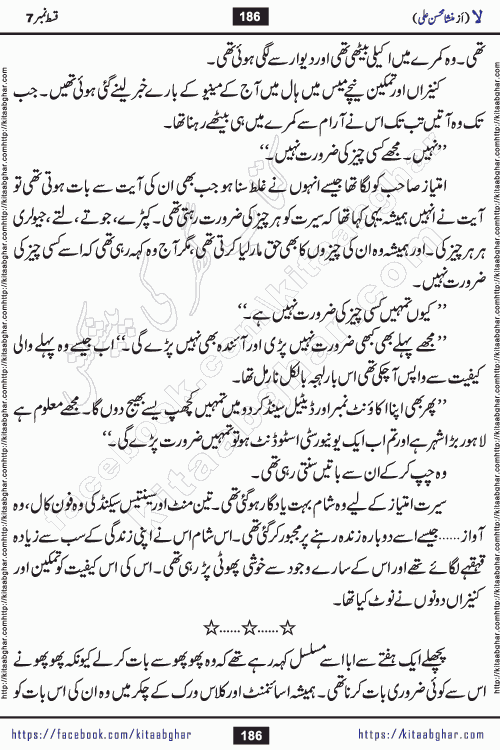 قسط نمبر 7
186
لا (از منشا محسن علی)
تھی۔ وہ کمرے میں اکیلی بیٹھی تھی اور دیوار سے لگی ہوئی تھی۔
کنیزاں اور تمکین نیچے میس میں ہال میں آج کے مینیو کے بارے خبر لینے گئی ہوئی تھیں۔ جب
تک وہ آتیں تب تک اس نے آرام سے کمرے میں ہی بیٹھے رہنا تھا۔
’’نہیں۔ مجھے کسی چیز کی ضرورت نہیں۔‘‘
امتیاز صاحب کو لگا تھا جیسے انہوں نے غلط سنا ہو جب بھی ان کی آیت سے بات ہوتی تھی تو
آیت نے انہیں ہمیشہ یہی کہا تھا کہ سیرت کو ہر چیز کی ضرورت رہتی تھی۔ کپڑے، جوتے، لتے، جیولری
ہر ہر چیز کی۔ اور ہمیشہ وہ ان کی چیزوں کا بھی حق مار لیا کرتی تھی، مگر آج وہ کہہ رہی تھی کہ اسے کسی چیز کی
ضرورت نہیں۔
’’کیوں تمہیں کسی چیز کی ضرورت نہیں ہے۔‘‘
’’مجھے پہلے بھی کبھی ضرورت نہیں پڑی اور آئندہ بھی نہیں پڑے گی۔‘‘ اب جیسے وہ پہلے والی
کیفیت سے واپس آ چکی تھی اس بار لہجہ بالکل نارمل تھا۔
’’پھر بھی اپنا اکاؤنٹ نمبر اور ڈیٹیل سینڈ کر دو میں تمہیں کچھ پیسے بھیج دوں گا۔ مجھے معلوم ہے
لاہور بڑا شہر ہے اور تم اب ایک یونیورسٹی اسٹوڈنٹ ہو تو تمہیں ضرورت پڑے گی۔‘‘
وہ چپ کر کے ان سے باتیں سنتی رہی تھی۔
سیرت امتیاز کے لیے وہ شام بہت یادگار ہو گئی تھی۔ تین منٹ اور سینتیس سیکنڈ کی وہ فون کال، وہ
آواز...... جیسے اسے دوبارہ زندہ رہنے پر مجبور کر گئی تھی۔ اس شام اس نے اپنی زندگی کے سب سے زیادہ
قہقہے لگائے تھے اور اس کے سارے وجود سے خوشی پھوٹی پڑ رہی تھی۔ اس کی اس کیفیت کو تمکین اور
کنیزاں دونوں نے نوٹ کیا تھا۔
☆......☆......☆
پچھلے ایک ہفتے سے ابا اسے مسلسل کہہ رہے تھے کہ وہ پھوپھو سے بات کر لے کیونکہ پھوپھو نے
اس سے کوئی ضروری بات کرنا تھی۔ ہمیشہ اسائنمنٹ اور کلاس ورک کے چکر میں وہ ان کی اس بات کو
https://facebook.com/kitaabghar
186
https://kitaabghar.com